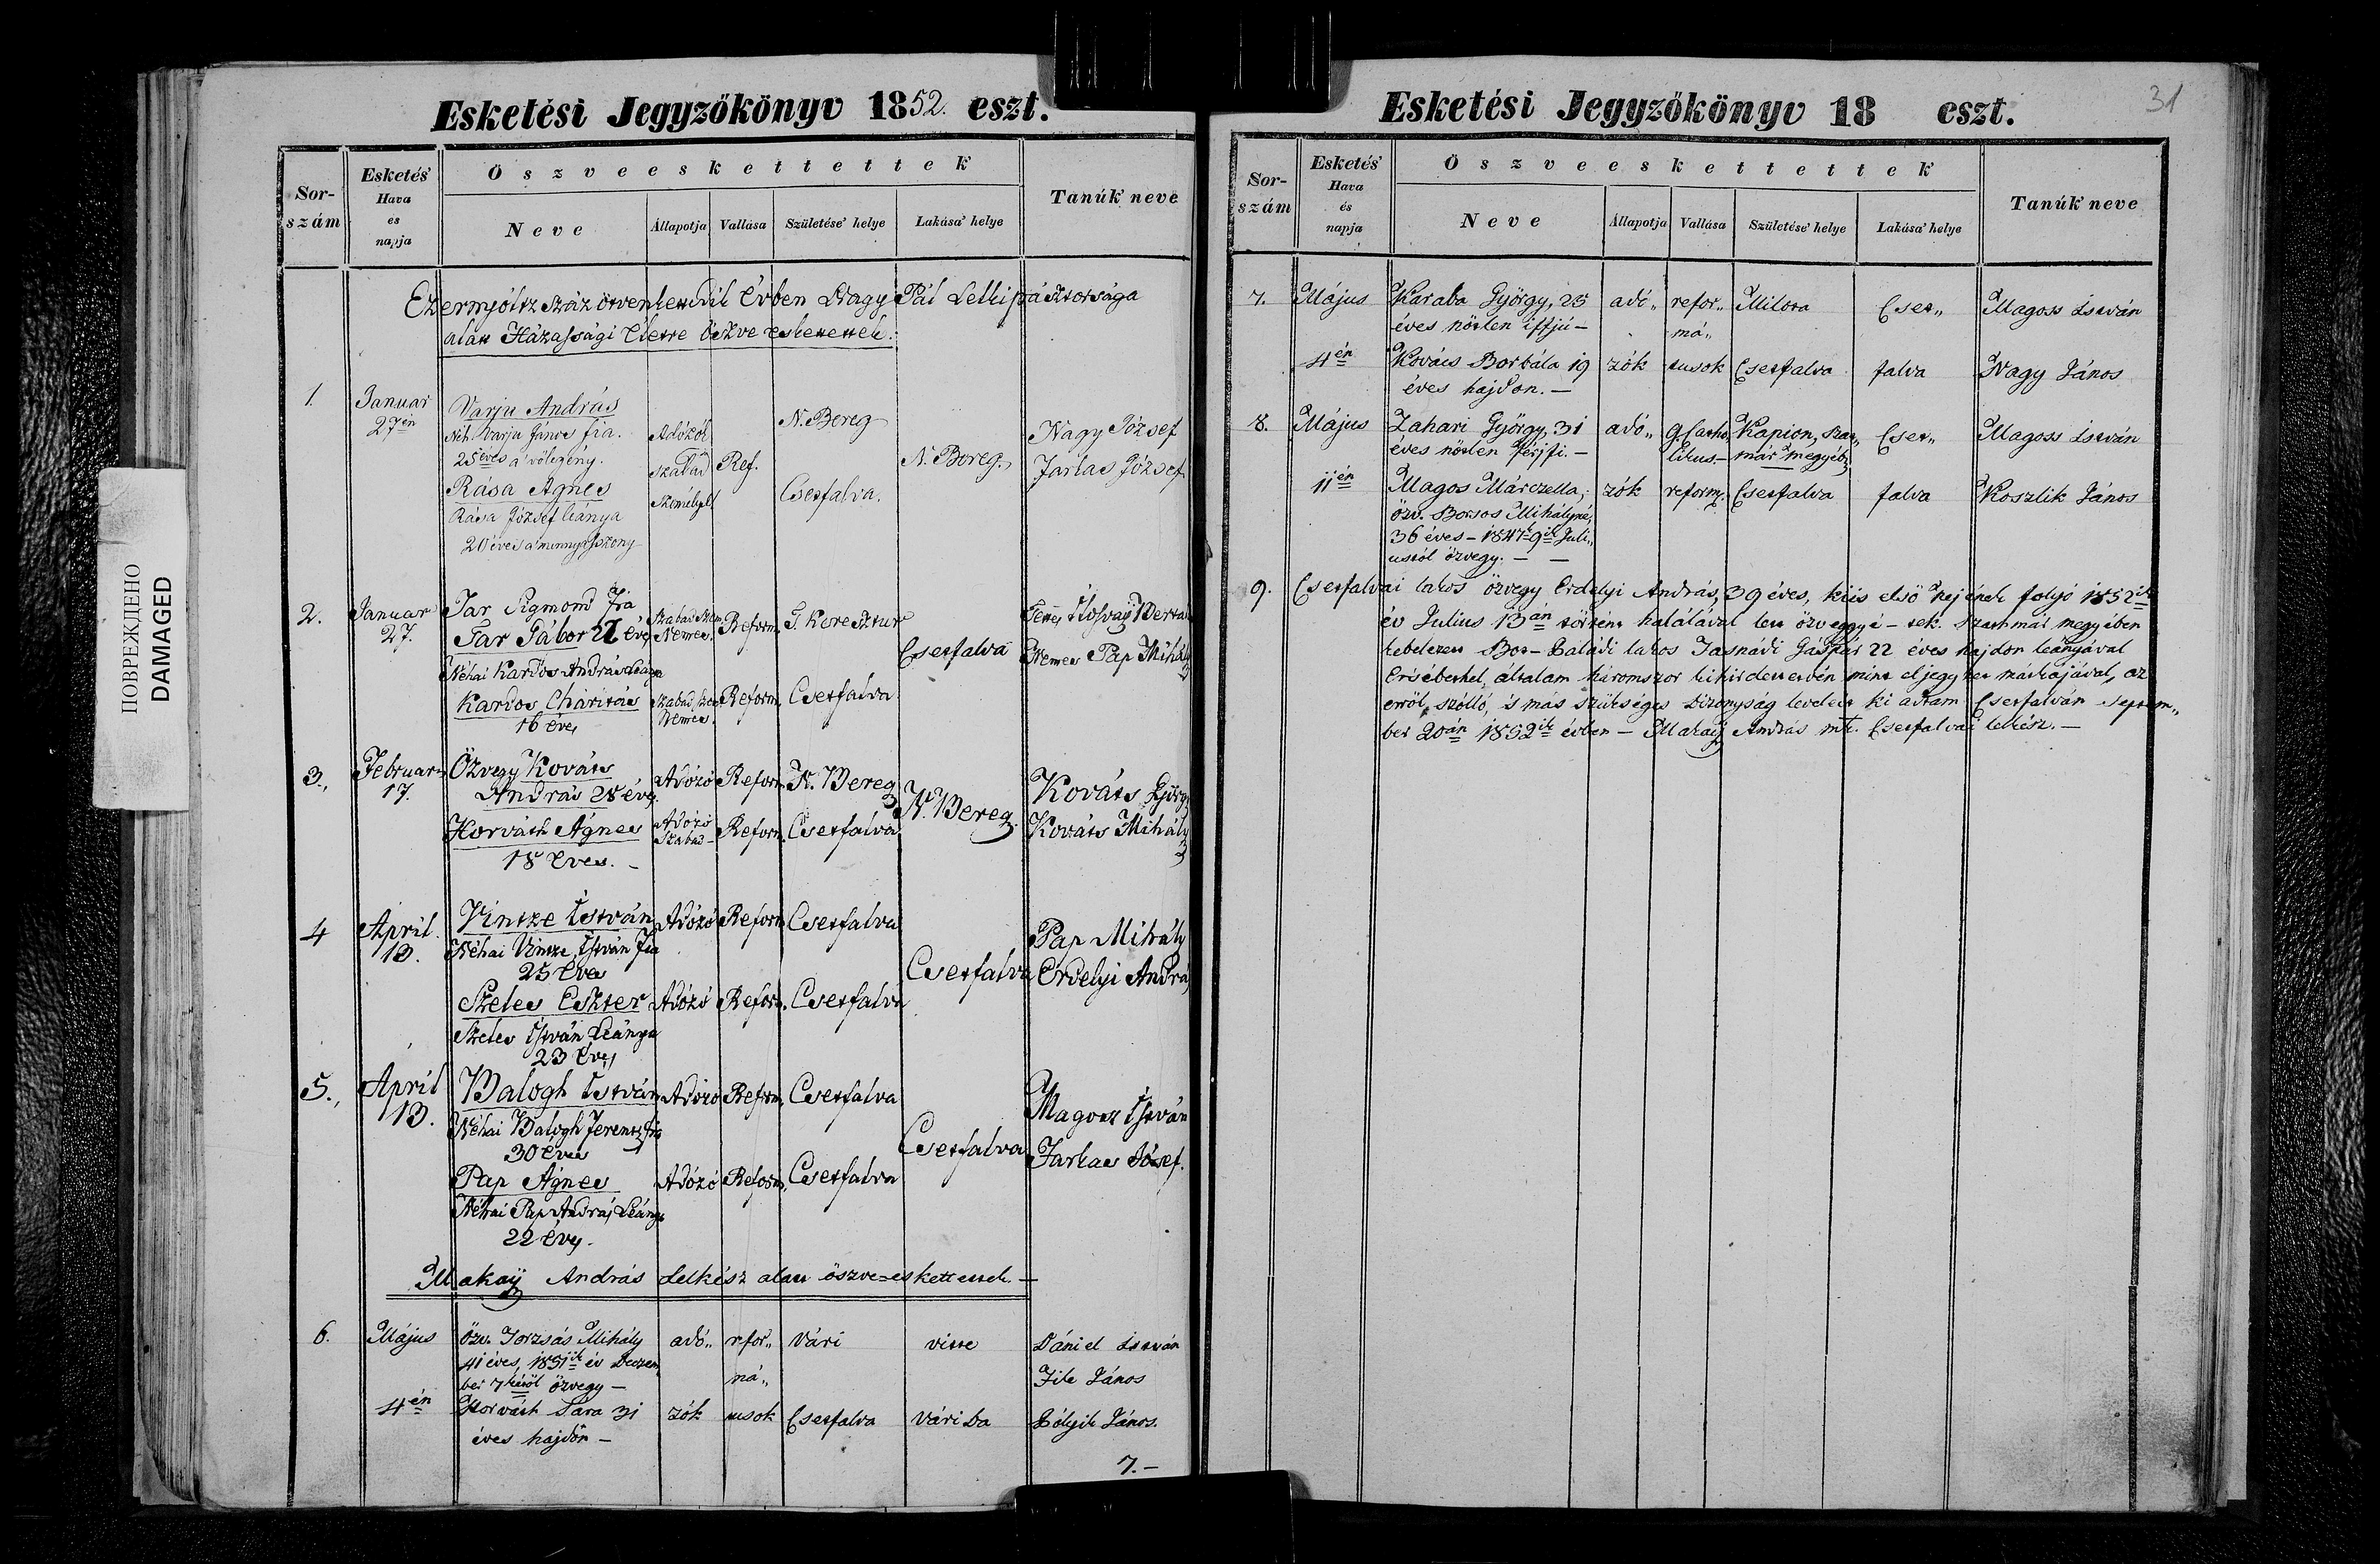 ПОВРЕЖДЕНО
DAMAGED
Esketési Jegyzőkönyv 1852. eszt.
Sor-szám
Esketés' Hava es napja
Öszveeskettettek
Neve
Állapotja
Vallása
Születése' helye
Lakása' helye
Tanúk neve
Ezernyóltz száz ötvenkettődik Évben Nagy Pál Lelkipásztorsága
alatt Házassági Életre öszve eskettettek:
1.
Januar
27én
Varju András
Néh. Varju János fia.
25 éves a' vőlegény.
Rása Ágnes
Rása József leánya
20 éves a' mennyasszony
Adózó
szabad
Személyek
Ref.
N. Bereg
Csetfalva.
N. Bereg.
Nagy József
Farkas József
2.
Januar
27.
Tar Sigmond Fia
Tar Gábor 21 éves
Néhai Kardos András Leánya
Kardos Cháritás
16 éves
Szabad Szem.
Nemes.
Szabad Szem.
Nemes.
Reform.
Reform.
T. Keresztur
Csetfalva
Csetfalva
Nemes Pap Mihály
3.,
Februar
17.
Özvegy Kováts
András 28 éves
Horváth Ágnes
18 Éves. –
Adózó
Adózó
Szabad –
Reform.
Reform.
N. Bereg
Csetfalva
N. Bereg.
Kováts György
Kováts Mihály
4
April.
13.
Vintze István
Néhai Vintze István Fia
25 Éves
Szeles Eszter
Szeles István Leánya
23 Éves
Adózó
Adózó
Reform.
Reform.
Csetfalva
Csetfalva
Csetfalva
Pap Mihály
Erdelyi András
5.,
April
13.
Balogh István
Néhai Balogh Ferentz fia
30 Éves
Pap Ágnes
Néhai Pap András Leánya
22 Éves.
Adózó
Adózó
Reform.
Reform.
Csetfalva
Csetfalva
Csetfalva
Magosz István
Farkas József.
Makaÿ András Lelkész alatt öszve=eskettettek. –
6.
Május
4én
Özv. Forzsás Mihály
41 éves, 1851ik év Deczem„
ber 7kétől özvegy –
Horváth Sára 31
éves hajdon –
adó„
zók
refor„
má„
tusok
Vári
Csetfalva
vitte
Váriba
Dániel István
File János
Bólyik János.
7. –
Esketési Jegyzőkönyv 18 eszt.
31
Sor-szám
Esketés' Hava és napja
Öszveeskettettek
Neve
Állapotja
Vallása
Születése' helye
Lakása' helye
Tanúk neve
7.
Május
4én
Karaba György, 25
éves nőtlen iffjú –
Kovács Borbála 19
éves hajdon. –
adó„
zók
refor„
má„
tusok
Milota
Csetfalva
Cset„
falva
Magoss István
Nagy János
8.
Május
11én
Zahari György, 31
éves nőtlen férjfi. –
Magos Márczella,
özv. Borsos Mihályné,
36 éves – 1847k 9ik Juli„
ustól özvegy. – –
adó„
zók
g. Catho„
likus. –
reform.
Kapion, Szat„
már megyében
Csetfalva
Cset„
falva
Magoss István
Koszlik János
9.
Csetfalvai lakos özvegy Erdélyi András, 39 éves, kiis első nejének folyó 1852ik
év Julius 13án történt halálával lett özveggyé – tek. Szathmár megyében
kebelezett Bot-Paládi lakos Jasnádi Gáspár 22 éves hajdon leányával
Erzsébethel, általam háromszor kihirdettetvén mint eljegyzett mátkájával, az
erről szólló, s más szükséges bizonyság levelet ki adtam Csetfalván Septem„
ber 20án 1852ik évben – Makaÿ András mk. Csetfalvai lelkész. –